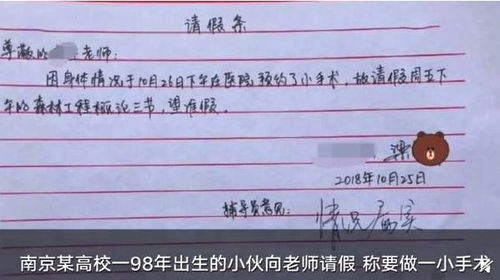 请假条
尊敬的 老师:
因身体情况于10月26日下午在医院预约了小手术,故请假周五下
午的森林工程概论三节,望准假。
梁
2018年10月25日
辅导员意见: 情况属实
南京某高校一98年出生的小伙向老师请假 称要做一小手术